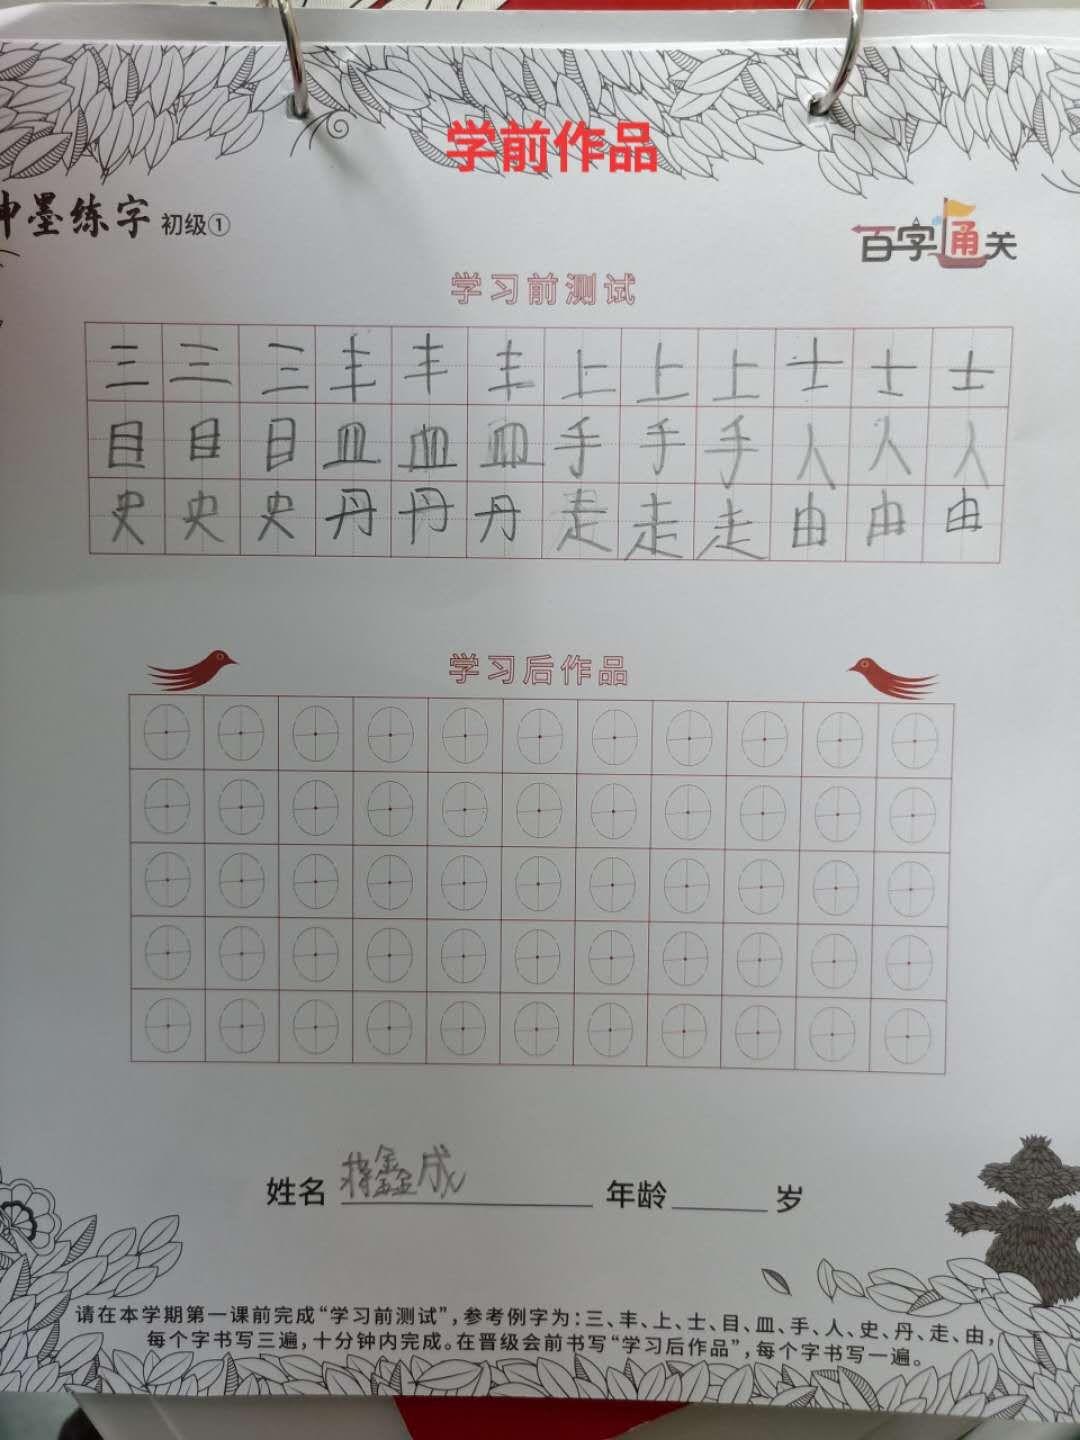 学前作品
神墨练字 初级①
百字通关
学习前测试
三三三丰丰丰上上上士士士
目目目皿皿皿手手手人人人
史史史丹丹丹走走走由由由
学习后作品
姓名 鑫成 年龄 岁
请在本学期第一课前完成“学习前测试”,参考例字为:三、丰、上、士、目、皿、手、人、史、丹、走、由,
每个字书写三遍,十分钟内完成。在晋级会前书写“学习后作品”,每个字书写一遍。